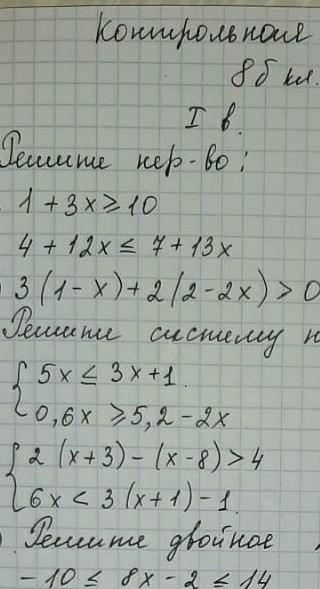 Контрольная
8б кл.
I в.
Решите нер-во:
1 + 3x ≥ 10
4 + 12x ≤ 7 + 13x
) 3(1 - x) + 2(2 - 2x) > 0
Решите систему н
{ 5x ≤ 3x + 1
0,6x ≥ 5,2 - 2x
{ 2(x + 3) - (x - 8) > 4
6x < 3(x + 1) - 1
) Решите двойное
-10 ≤ 8x - 2 ≤ 14